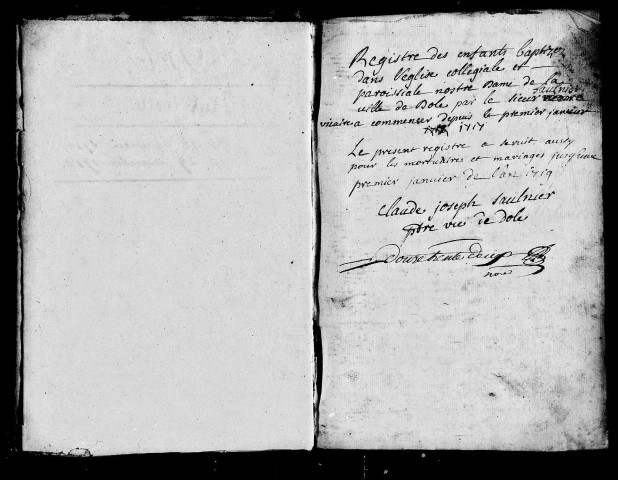 Registre des enfants baptizes
dans l'eglise collegiale et
paroissiale nostre Dame de la
ville de Dole par le sieur Saulnier
vicaire a commencer depuis le premier janvier
1717
Le present registre a servit aussy
pour les mortuaires et mariages jusq'au
premier janvier de l'an 1719
Claude joseph Saulnier
ptre vic de dole